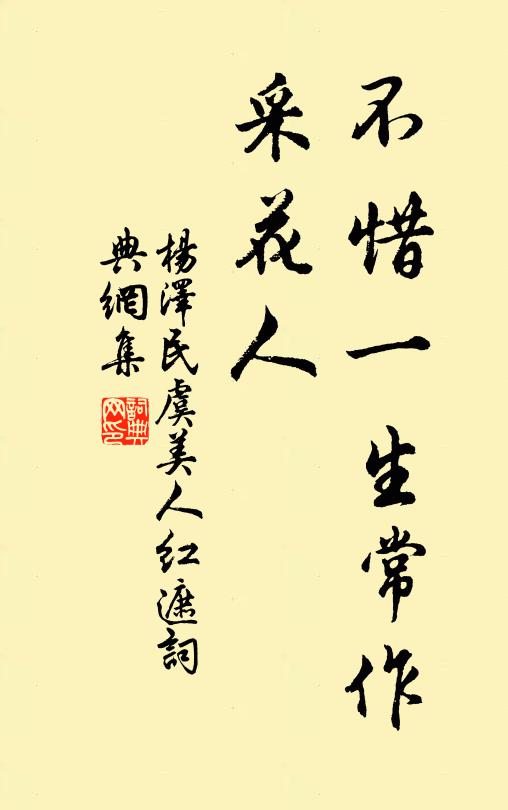 不惜一生常作
采花人
楊澤民虞美人紅遮詞
典網集
詞典
网印